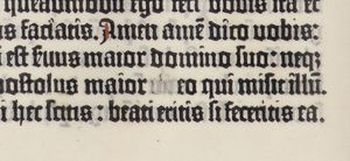 queadmodū ego feci vobis ita et
s faciatis. Amen amē dico vobis:
i est s̄uus maior domino suo: neq;
postolus maior eo qui misit illū.
i hec scitis: beati eritis si feceritis ea.